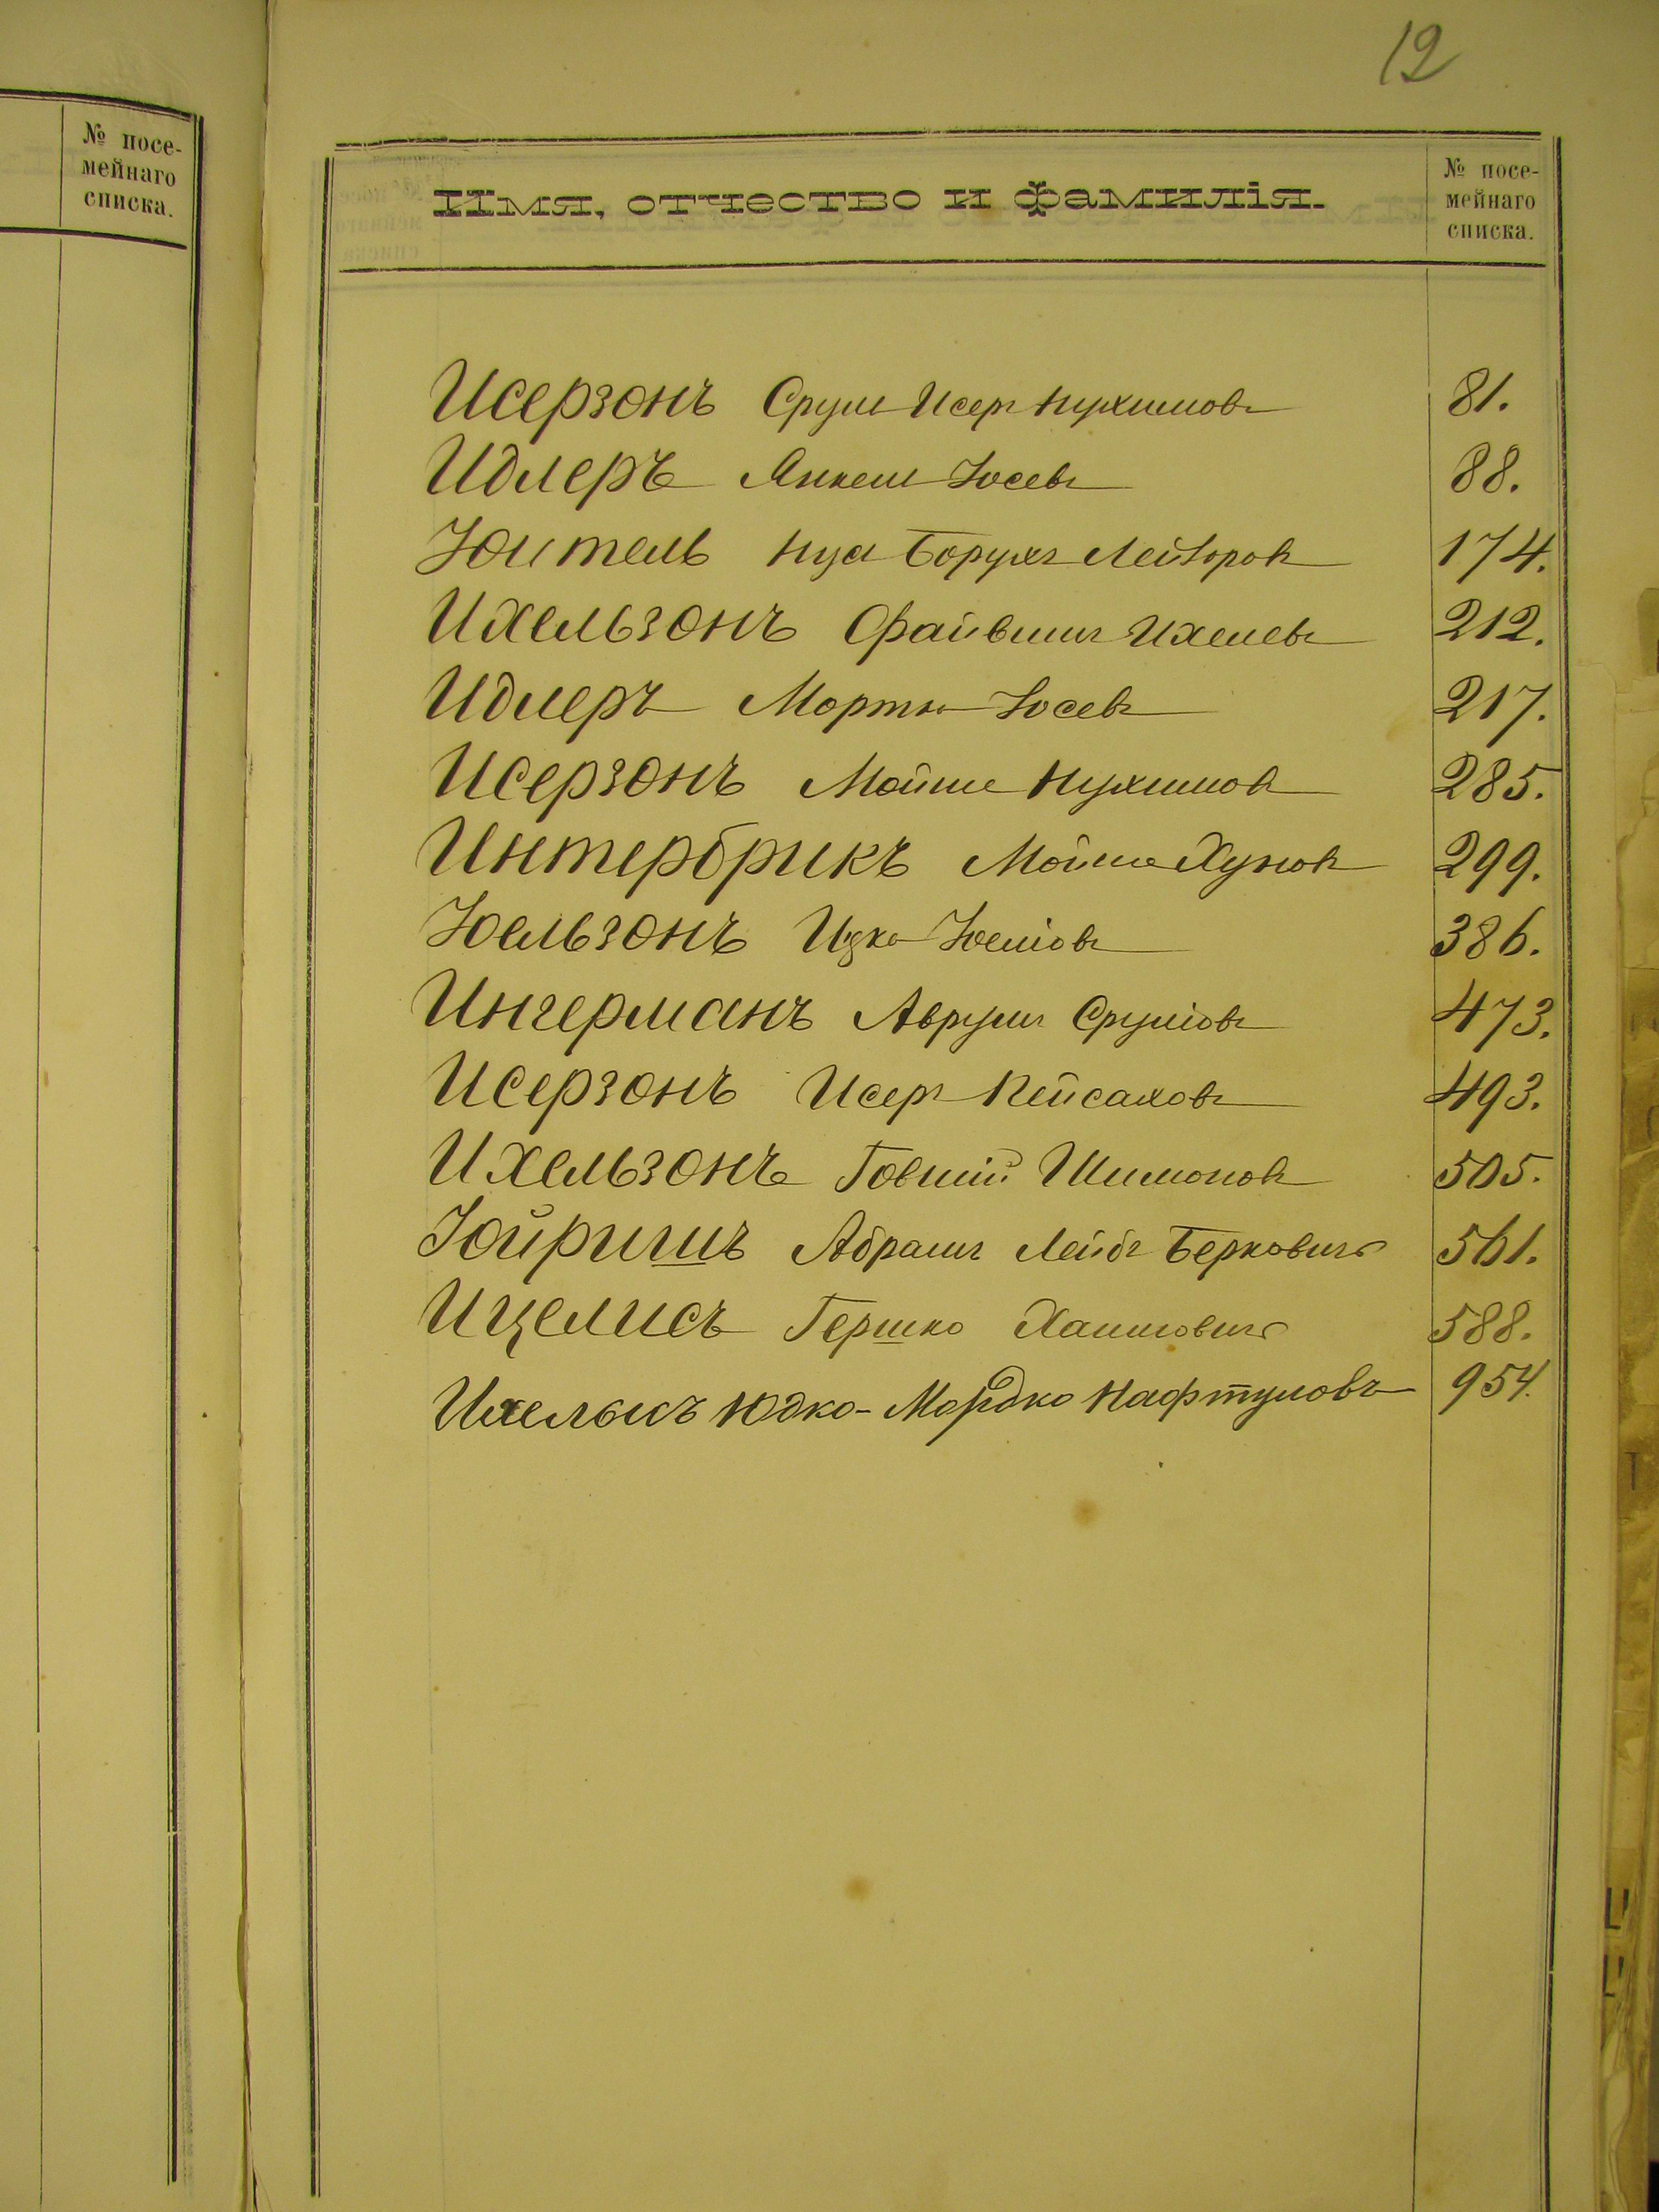 12
№ посе-
мейнаго
списка.
Имя, отчество и фамилія.
№ посе-
мейнаго
списка.
Исерзонъ Сруль Исеръ Нухимовъ 81.
Идлеръ Янкель Іосевъ 88.
Борухъ 174.
Ихельзонъ Файвишъ Ихелевъ 212.
Идлеръ Іосевъ 217.
Исерзонъ Мойше Нухимовъ 285.
Интербрикъ Мойше Хуновъ 299.
Іоельзонъ Ицко Іоеліовъ 386.
Ингерманъ Аврумъ Сруліовъ 473.
Исерзонъ Исеръ Пейсаховъ 493.
Ихельзонъ Говшій Шимоновъ 505.
Абрамъ Лейбъ Берковичъ 561.
Ицелисъ Гершко Хаимовичъ 588.
Юдко-Мордко Нафтуловъ 954.